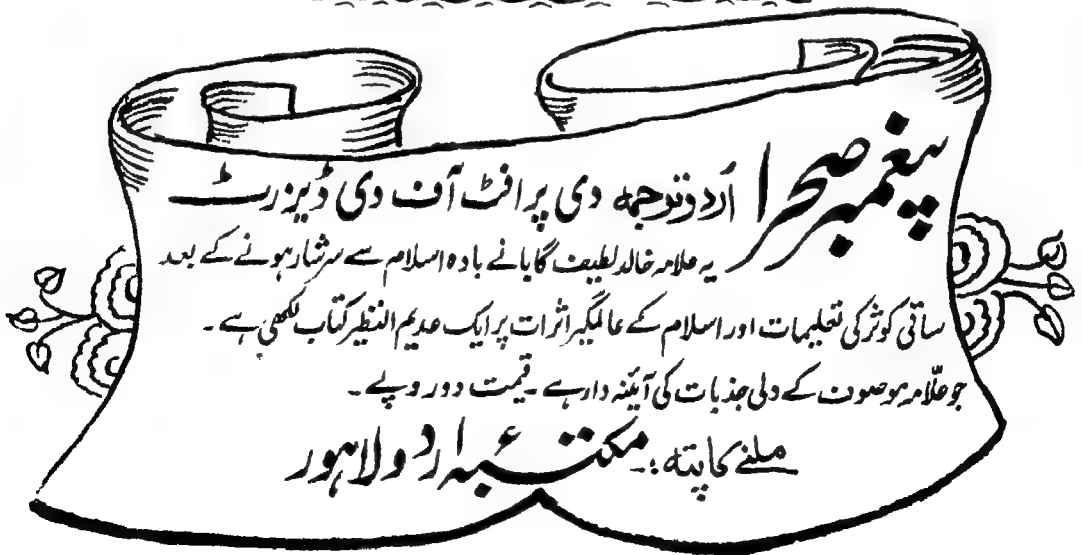 پیغمبر صحرا اُردو ترجمہ دی پرافٹ آف دی ڈیزرٹ
یہ علامہ خالد لطیف گابا نے بادہ اسلام سے سرشار ہونے کے بعد
ساقی کوثر کی تعلیمات اور اسلام کے عالمگیر اثرات پر ایک عدیم النظیر کتاب لکھی ہے۔
جو علّامہ موصوف کے دلی جذبات کی آئینہ دار ہے۔ قیمت دو روپے۔
ملنے کا پتہ :۔ مکتبۂ اردو لاہور